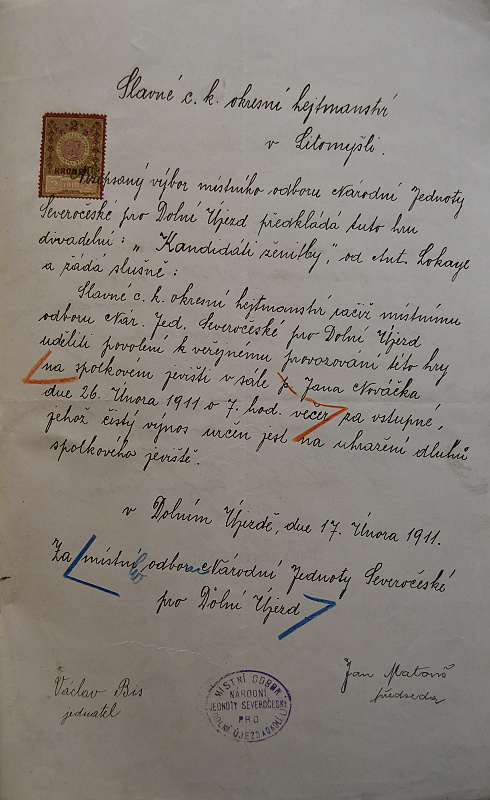 Slavné c. k. okresní hejtmanství
v Litomyšli.
KRONEN
Nížepsaný výbor místního odboru Národní Jednoty
Severočeské pro Dolní Újezd předkládá tuto hru
divadelní: „Kandidáti ženitby," od Ant. Lokaye
a žádá slušně:
Slavné c. k. okresní hejtmanství račiž místnímu
odboru Nár. Jed. Severočeské pro Dolní Újezd
uděliti povolení k veřejnému provozování této hry
na spolkovém jevišti v sále p. Jana Nováčka
dne 26. Února 1911 o 7. hod. večer za vstupné,
jehož čistý výnos určen jest na uhražení dluhů
spolkového jeviště.
v Dolním Újezdě, dne 17. Února 1911.
Za místní odbor Národní Jednoty Severočeské
pro Dolní Újezd
Václav Bis
jednatel
MÍSTNÍ ODBOR
NÁRODNÍ
JEDNOTY SEVEROČESKÉ
PRO
DOLNÍ ÚJEZD A OKOLÍ
Jan Matouš
předseda